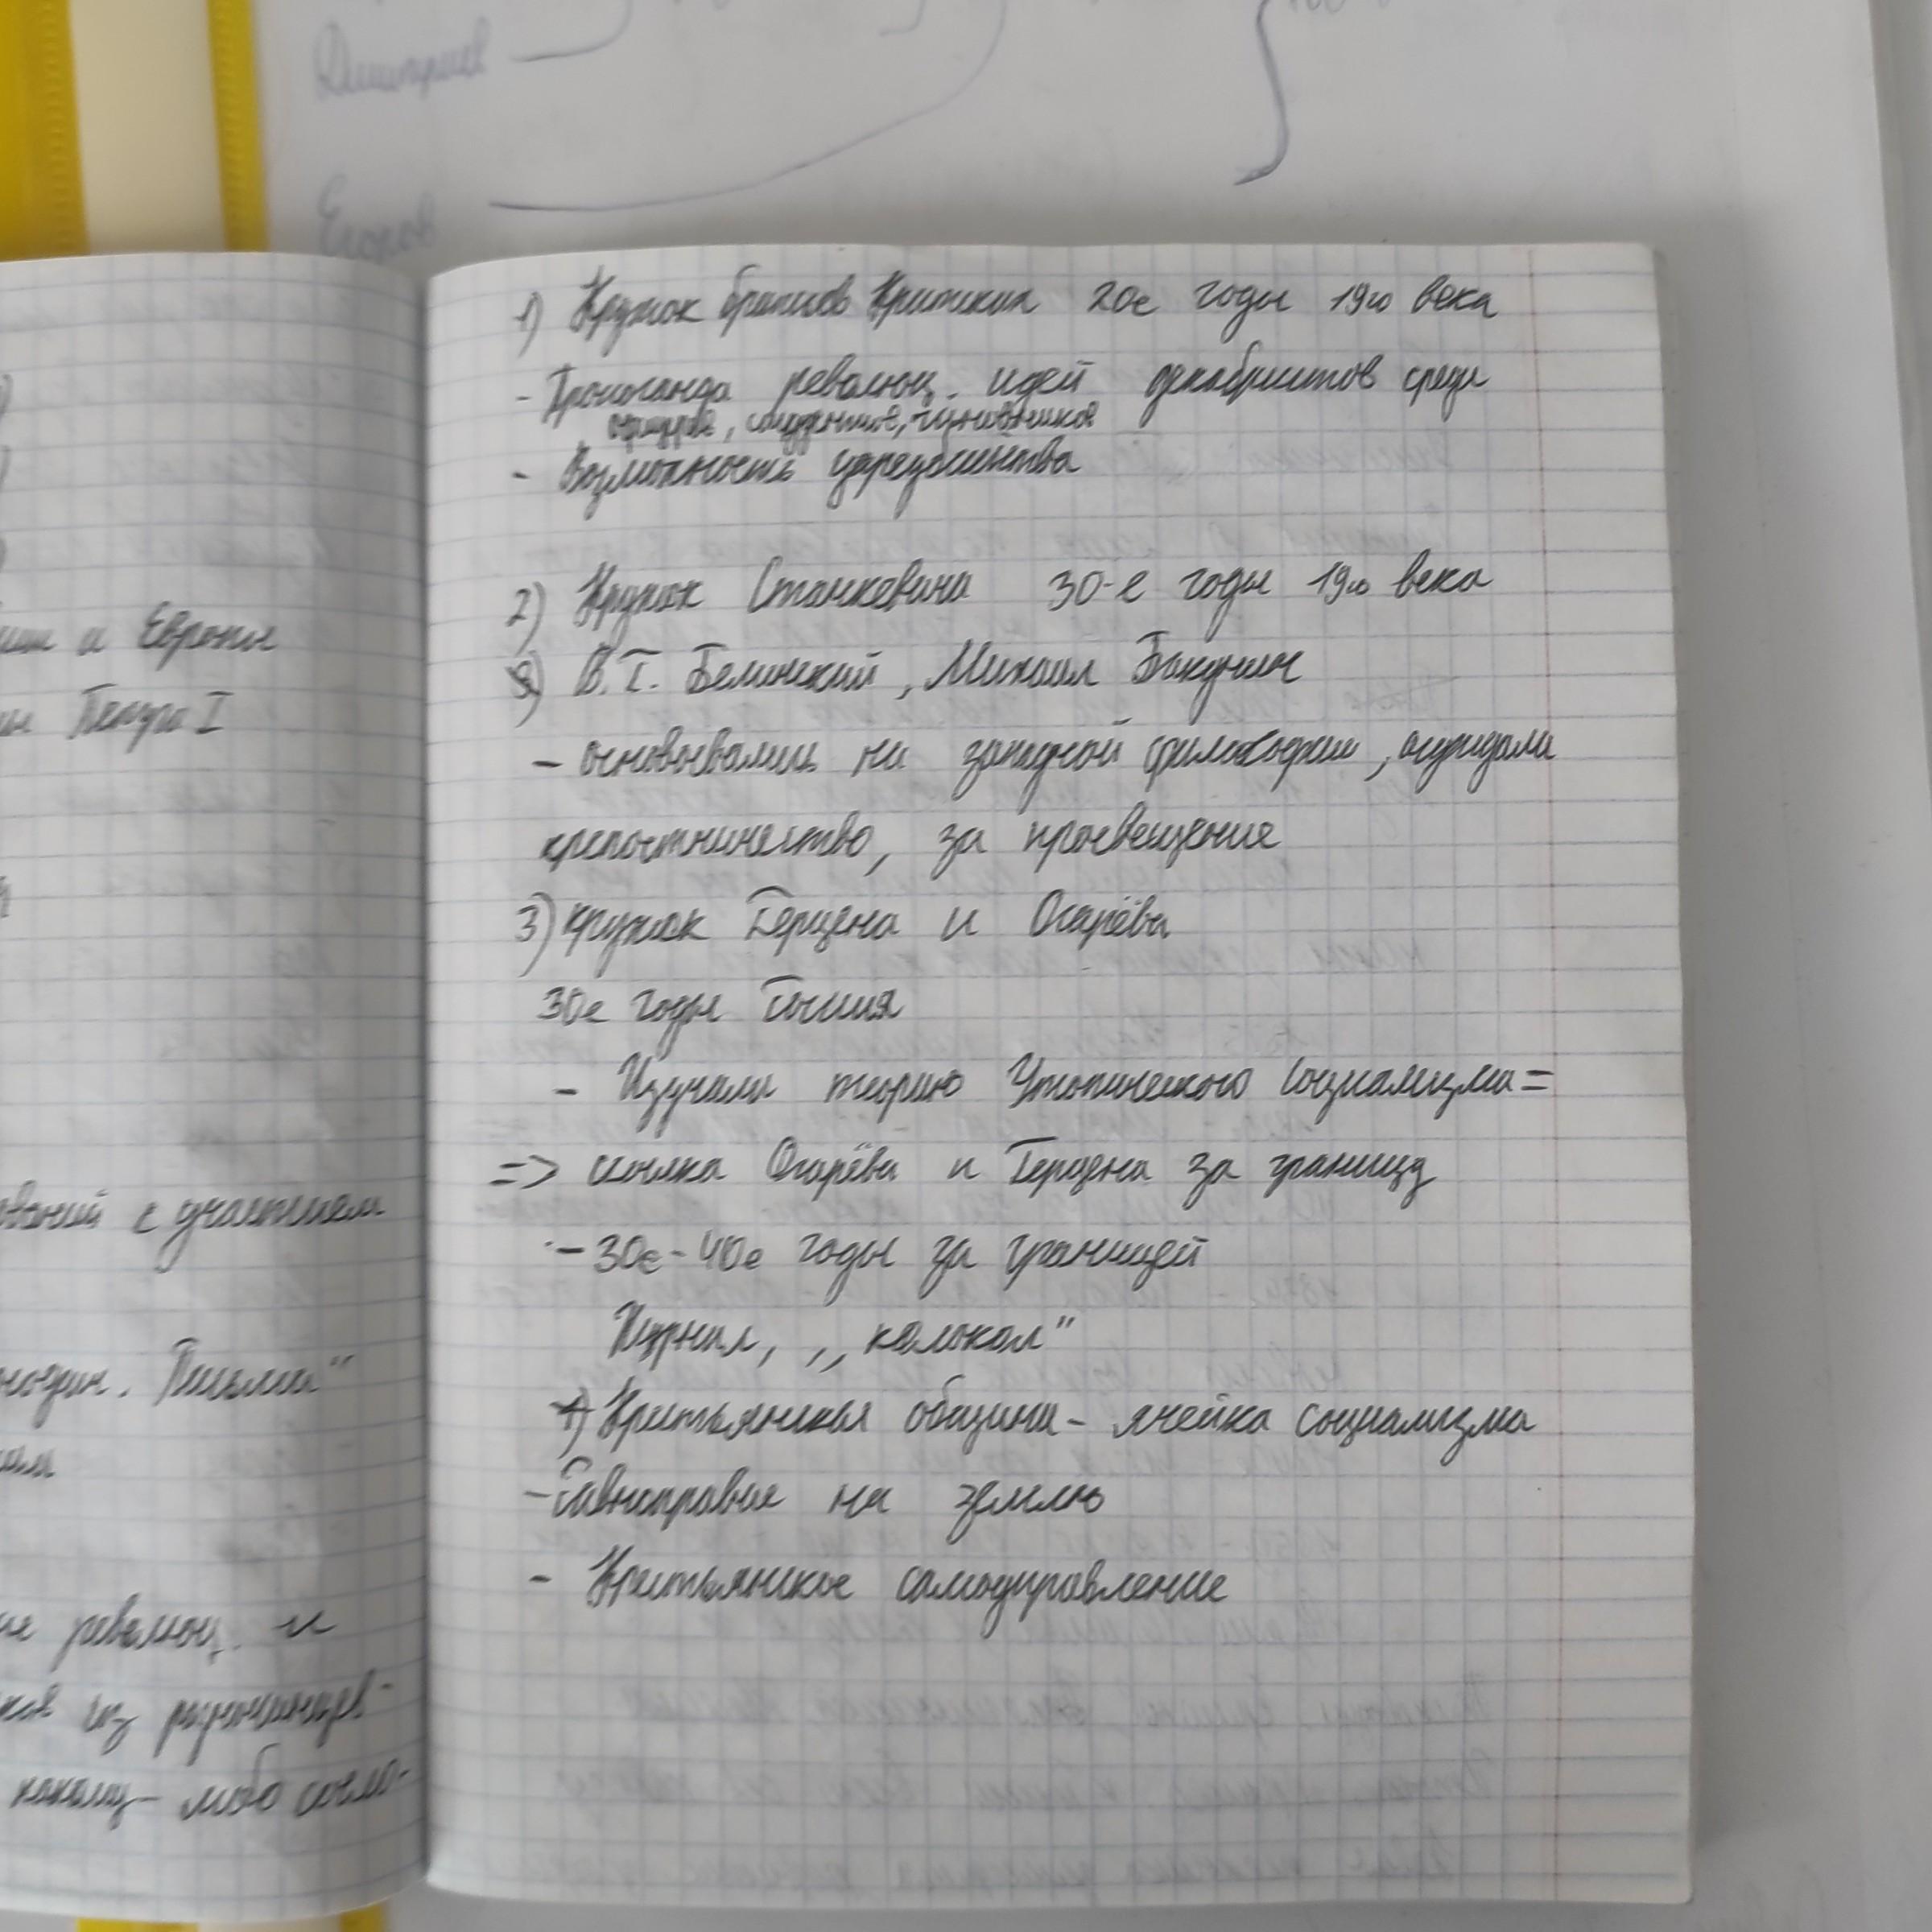 Дмитриев
Егоров
1) Кружок братьев Критских 20е годы 19го века
- Пропоганда революц. идей декабристов среди
офицеров, студентов, чиновников
- Возможность цареубийства
2) Кружок Станкевича 30-е годы 19го века
В.Г. Белинский, Михаил Бакунин
- основывались на западной философии, осуждали
крепостничество, за просвещение
3) кружок Герцена и Огарёва
30е годы Россия
- Изучали теорию Утопического социализма =
=> ссылка Огарёва и Герцена за границу
- 30е-40е годы за границей
Журнал, ,,колокол"
1) Крестьянская община - ячейка социализма
- Равноправие на землю
- Крестьянское самоуправление
и Европы
Петра I
с участием
Письма"
революц. и
из
какому-либо сосло-